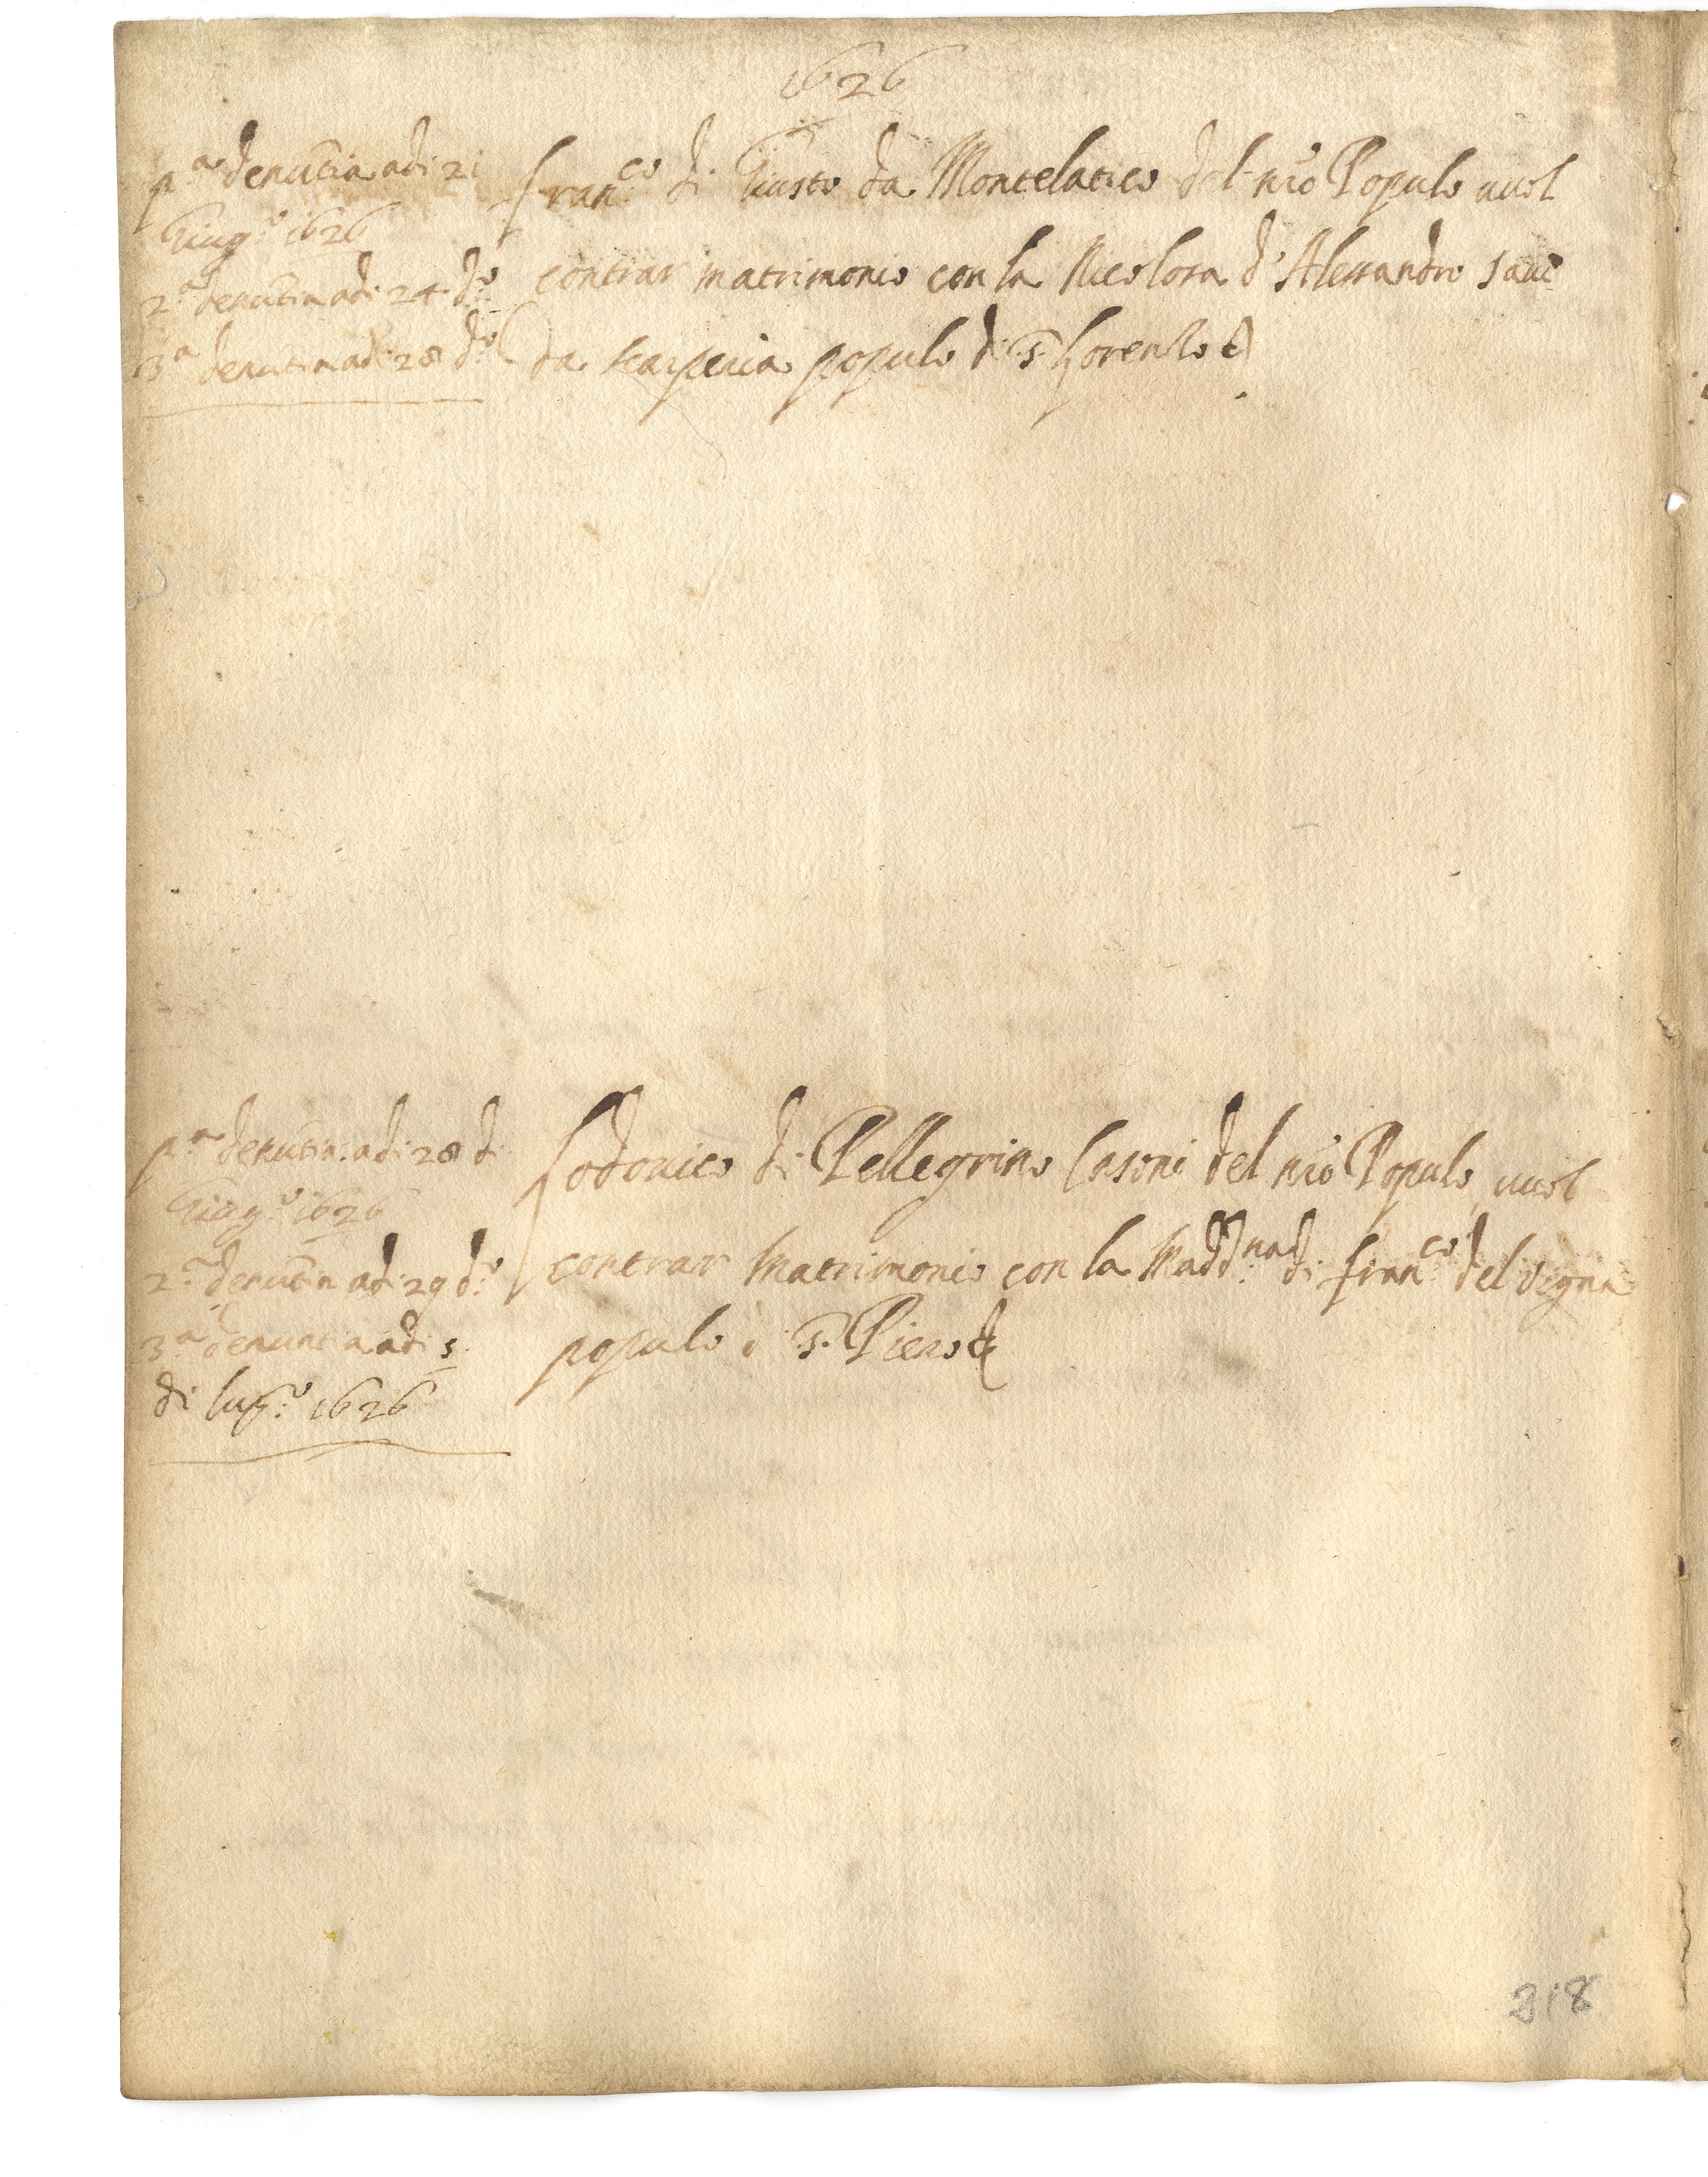 1626
p.ª denũtia adi 21
Giug.º 1626
2.ª denũtia adi 24 d.º
3.ª denũtia adi 28 d.º
Fran.co di Giusto da Montelatico del nr̃o Populo vuol
contrar matrimonio con la Nicolosa d'Alessandro
da scarperia populo di S. Lorenzo &
p.ª denũtia adi 28 di
Giug.º 1626
2.ª denũtia adi 29 d.º
3.ª denuntia adi 5
di lug.º 1626
Lodovico di Pellegrino Casoni del nr̃o Populo vuol
contrar Matrimonio con la Madd.na di Fran.co del Vigna
populo di S. Piero &
218